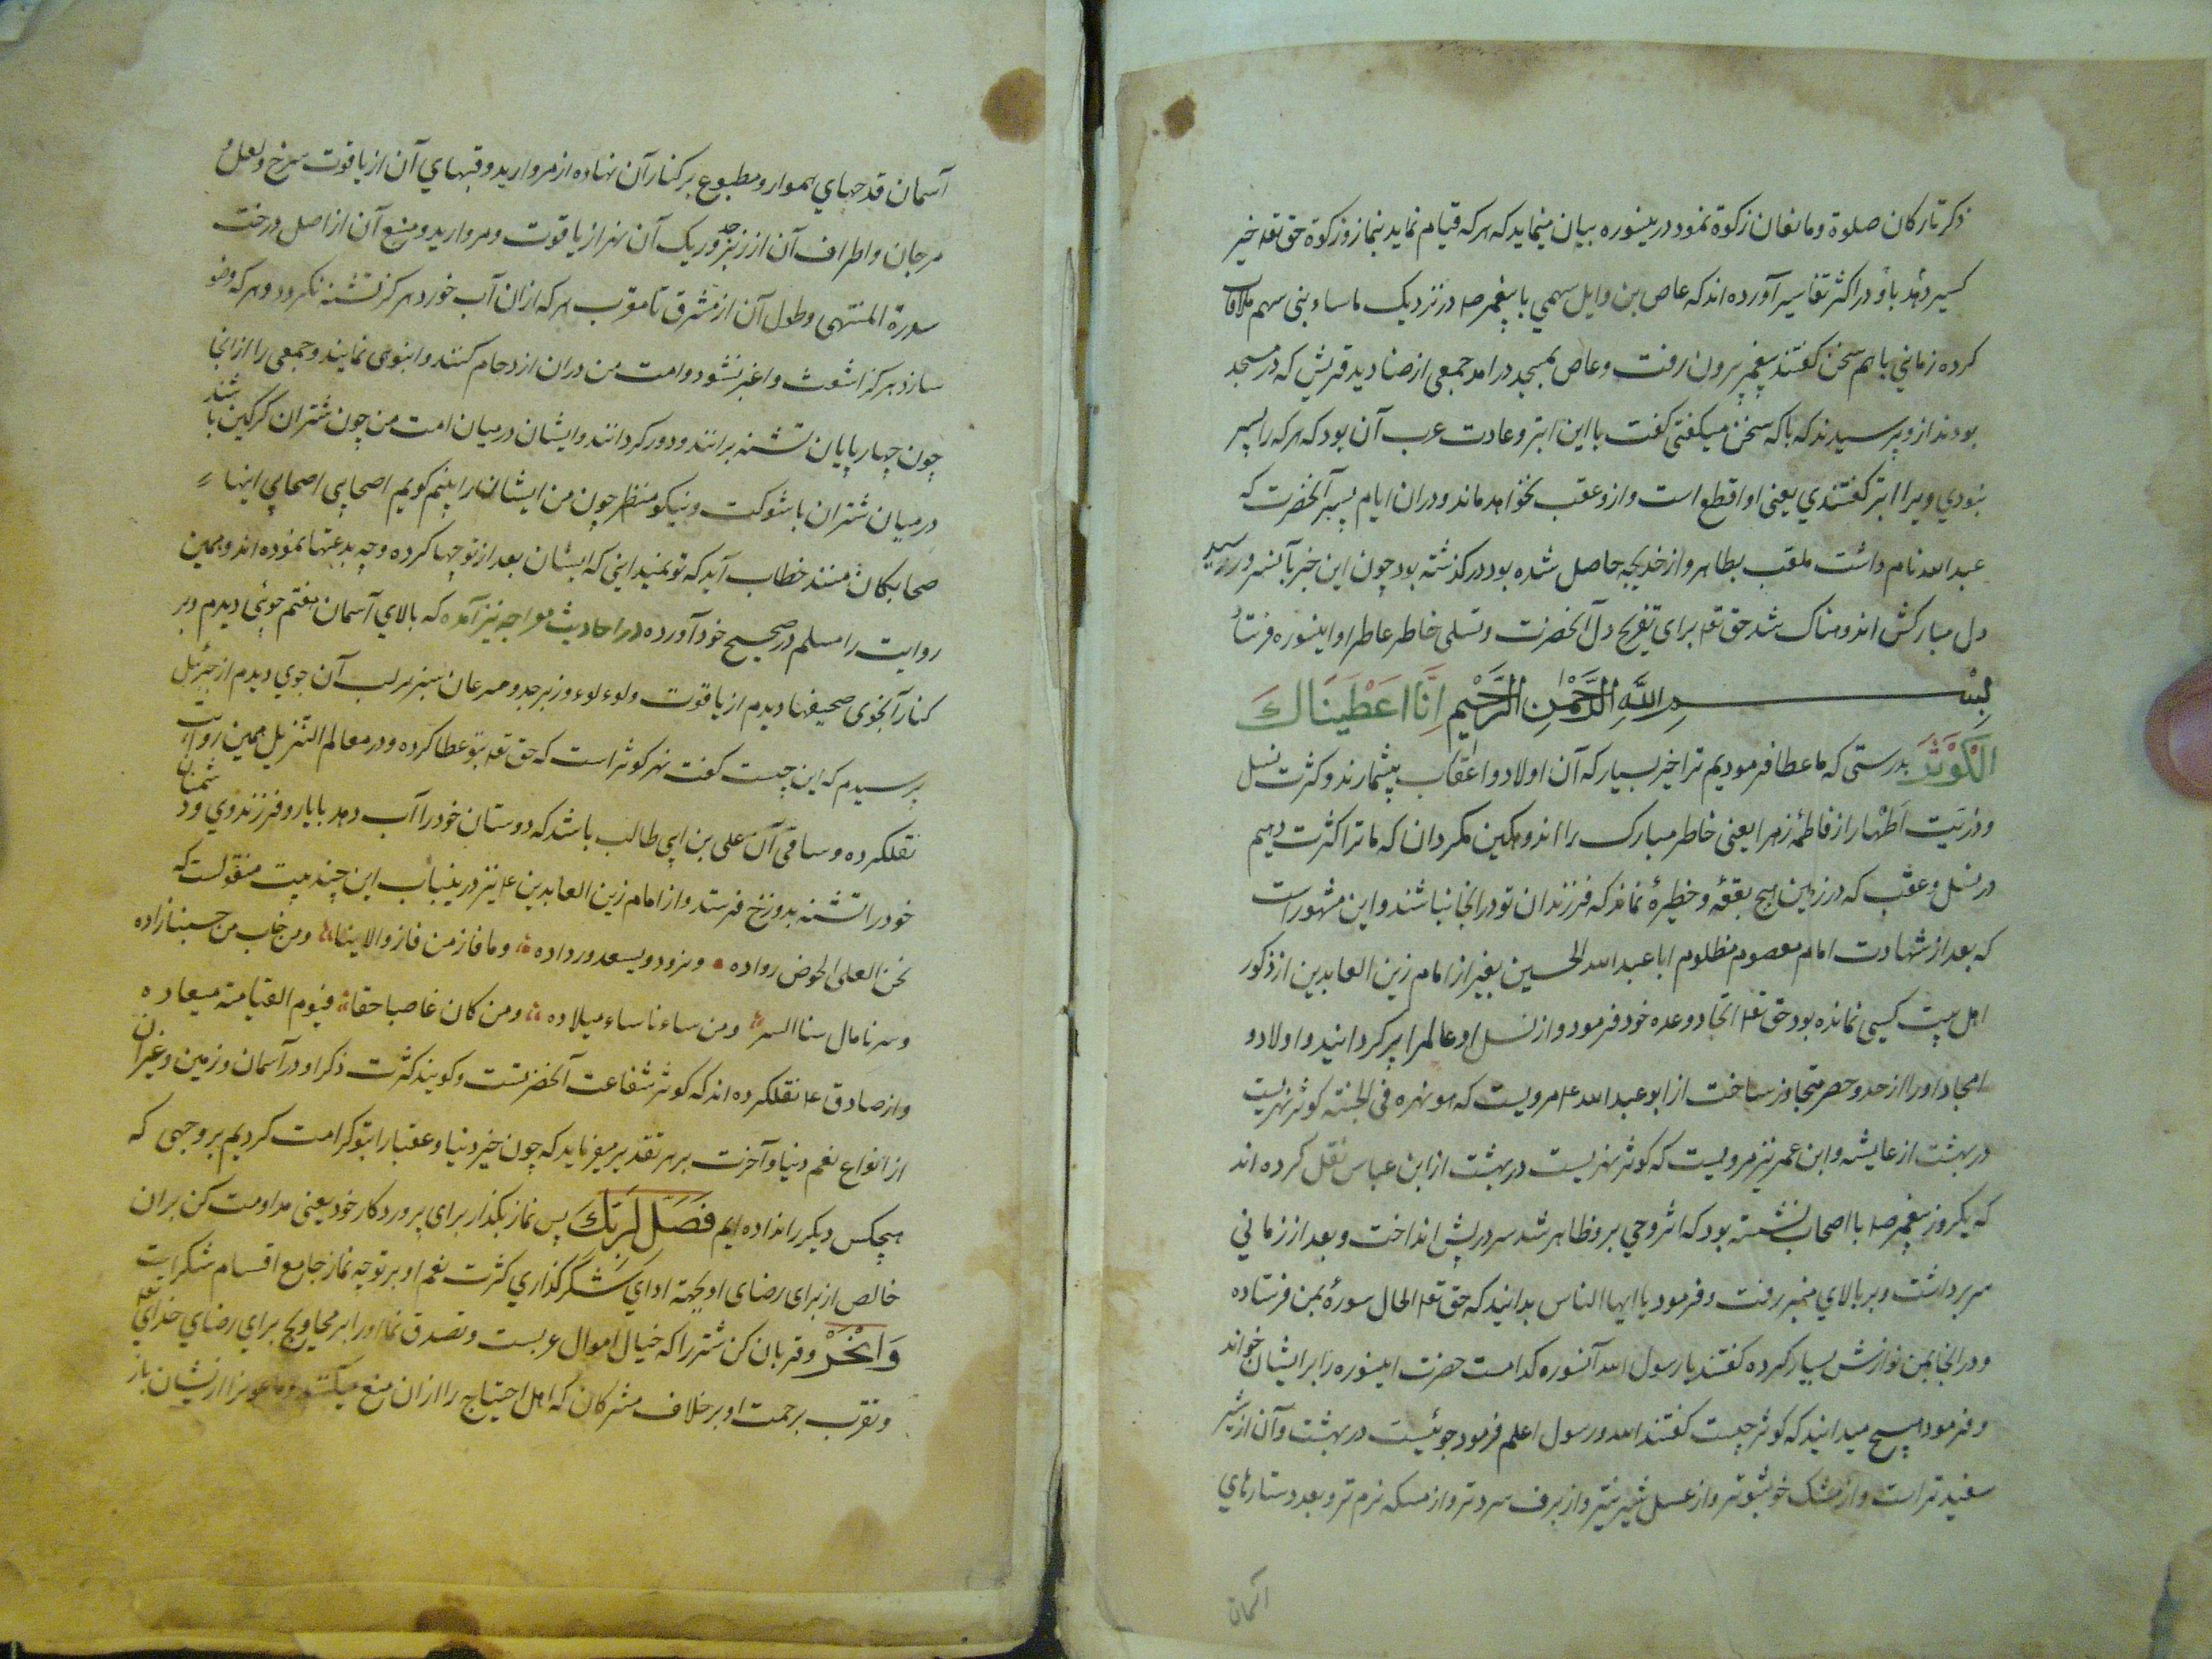 ذکر تارکان صلوة و مانعان زکوة نمود درینسوره بیان مینماید که هر که قیام نماید بنماز و زکوة حق تعه خیر
کسیر دهد باو و در اکثر تفاسیر آورده اند که عاص بن وایل سهمي با پیغمبر صه در نزدیک باب بنی سهم ملاقات
کرده زماني باهم سخن کفتند پیغمبر بیرون رفت و عاص بمسجد در امد جمعی از صنادید قریش که در مسجد
بودند ازو پرسیدند که باکه سخن میکفتی کفت با این ابتر و عادت عرب آن بود که هر که را پسر
نبودي ویرا ابتر کفتندي یعنی او اقطع است و ازو عقب نخواهد ماند و دران ایام پسر آنحضرت که
عبد الله نام داشت ملقب بطاهر و از خدیجه حاصل شده بود در کذشته بود چون این خبر بآنسرور رسید
دل مبارکش اندوهناک شد حق تعه برای تفریح دل آنحضرت و تسلی خاطر عاطر او اینسوره فرستاد
بسم الله الرحمن الرحیم انا اعطیناک
الکوثر بدرستی که ما عطا فرمودیم ترا خیر بسیار که آن اولاد و اعقاب بیشمارند و کثرت نسل
و ذریت اطهار از فاطمهٔ زهرا یعنی خاطر مبارک را اندوهکین مکردان که ما ترا کثرت دهیم
در نسل و عقب که در زمین هیچ بقعهٔ و خطیرهٔ نماند که فرزندان تو در انجا نباشند و این مشهور است
که بعد از شهادت امام معصوم مظلوم ابا عبد الله الحسین بغیر از امام زین العابدین از ذکور
اهل بیت کسی نمانده بود حق تعه انجاز وعده خود فرمود و از نسل او عالمرا پر کردانید و اولاد و
امجاد اورا از حد و حصر متجاوز ساخت از ابو عبد الله ع مرویست که هو نهر فی الجنة کوثر نهریست
در بهشت از عایشه و ابن عمر نیز مرویست که کوثر نهریست در بهشت از ابن عباس نقل کرده اند
که یکروز پیغمبر صه با اصحاب نشسته بود که اثر وحي برو ظاهر شد سر در پیش انداخت و بعد از زماني
سر برداشت و بر بالاي منبر رفت و فرمود یا ایها الناس بدانید که حق تعه الحال سورهٔ بمن فرستاده
و در انجا بمن نوازش بسیار کرده کفتند یا رسول الله آنسوره کدامست حضرت اینسوره را بر ایشان خواند
و فرمود هیچ میدانید که کوثر چیست کفتند الله و رسول اعلم فرمود جوئیست در بهشت و آن از شیر
سفید تر است و از مشک خوشبوتر و از عسل شیرینتر و از برف سردتر و از مسکه نرم تر و بعدد ستارهاي
آسمان
آسمان قدحهاي هموار و مطبوع بر کنار آن نهاده از مروارید و قبهاي آن از یاقوت سرخ و لعل و
مرجان و اطراف آن از زبرجد و ریک آن نهر از یاقوت و مروارید و منبع آن از اصل درخت
سدرة المنتهی و طول آن از مشرق تا مغرب هر که ازان آب خورد هرکز تشنه نکردد و هر که وضو
سازد هرکز اشعث و اغبر نشود و امت من دران ازدحام کنند و انبوهی نمایند و جمعی را از انجا
چون چهار پایان تشنه برانند و دور کردانند و ایشان در میان امت من چون شتران کرکین باشند
در میان شتران با شوکت و نیکو منظر چون من ایشانرا بینم کویم اصحابي اصحابي اینها
صحابکان منند خطاب آید که تو نمیداني که ایشان بعد از تو چها کرده و چه بدعتها نموده اند و همین
روایت را مسلم در صحیح خود آورده در احادیث معراجیه نیز آمده که بالاي آسمان هفتم جوئي دیدم و بر
کنار آنجوی صحیفها دیدم از یاقوت و لوء لوء و زبرجد و مرغان سبز بر لب آن جوي دیدم از جبرئیل
پرسیدم که این چیست کفت نهر کوثر است که حق تعه بتو عطا کرده و در معالم التنزیل همین روایت
نقلکرده و ساقی آن علی بن ابي طالب باشد که دوستان خود را آب دهد با یازده فرزند وي و دشمنان
خود را تشنه بدوزخ فرستد و از امام زین العابدین ع نیز درینباب این چند بیت منقولست که
نحن العلی الحوض رواده و نزود و یسعد وراده و ما فاز من فاز و الا بنا و من خاب من حبنا زاده
و سرنا نال منا السر و من ساءنا ساء میلاده و من کان غاصبا حقا فیوم القیامة میعاده
و از صادق ع نقلکرده اند که کوثر شفاعت آنحضرتست و کویند کثرت ذکر او در آسمان و زمین و غیر آن
از انواع نعم دنیا و آخرت بر هر تقدیر میفرماید که چون خیر دنیا و عقبا را بتو کرامت کردیم بر وجهی که
هیچکس دیکر را نداده ایم فصل لربک پس نماز بکذار برای پروردکار خود یعنی مداومت کن بران
خالص از برای رضای او بجهة اداي شکر کذاري کثرت نعم او بر تو چه نماز جامع اقسام شکرایست
وانحر و قربان کن شتر را که خیال اموال عربست و تصدق نما اورا بر محاویج براي رضاي خداي تعه
و تقرب برحمت او بر خلاف مشرکان که اهل احتیاج را ازان منع میکنند و ماعون را از ایشان باز